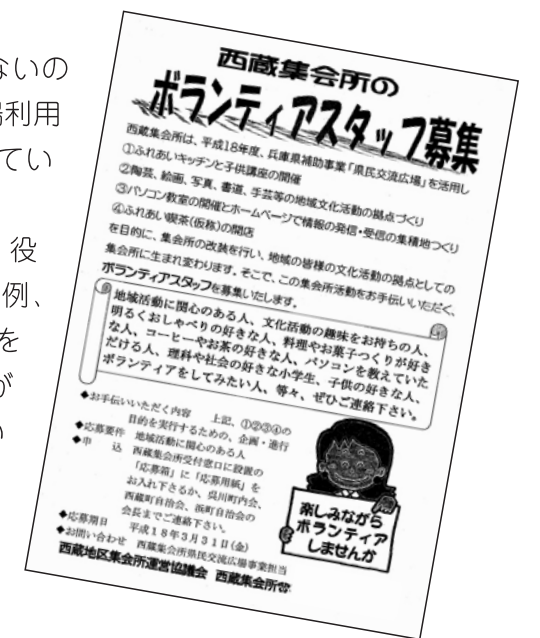 ないの
場利用
てい
役
例、
を
が
い
西蔵集会所の
ボランティアスタッフ募集
西蔵集会所は、平成18年度、兵庫県補助事業「県民交流広場」を活用し
①ふれあいキッチンと子供講座の開催
②陶芸、絵画、写真、書道、手芸等の地域文化活動の拠点づくり
③パソコン教室の開催とホームページで情報の発信・受信の集積地つくり
④ふれあい喫茶(仮称)の開店
を目的に、集会所の改装を行い、地域の皆様の文化活動の拠点としての
集会所に生まれ変わります。そこで、この集会所活動をお手伝いいただく、
ボランティアスタッフを募集いたします。
地域活動に関心のある人、文化活動の趣味をお持ちの人、
明るくおしゃべりの好きな人、料理やお菓子つくりが好き
な人、コーヒーやお茶の好きな人、パソコンを教えていた
だける人、理科や社会の好きな小学生、子供の好きな人、
ボランティアをしてみたい人、等々、ぜひご連絡下さい。
◆お手伝いいただく内容 上記、①②③④の
目的を実行するための、企画・進行
◆応募要件 地域活動に関心のある人
◆申込 西蔵集会所受付窓口に設置の
「応募箱」に「応募用紙」を
お入れ下さるか、呉川町内会、
西蔵町自治会、浜町自治会の
会長までご連絡下さい。
◆応募期日 平成18年3月31日(金)
◆お問い合わせ 西蔵集会所県民交流広場事業担当
西蔵地区集会所運営協議会 西蔵集会所
楽しみながら
ボランティア
しませんか